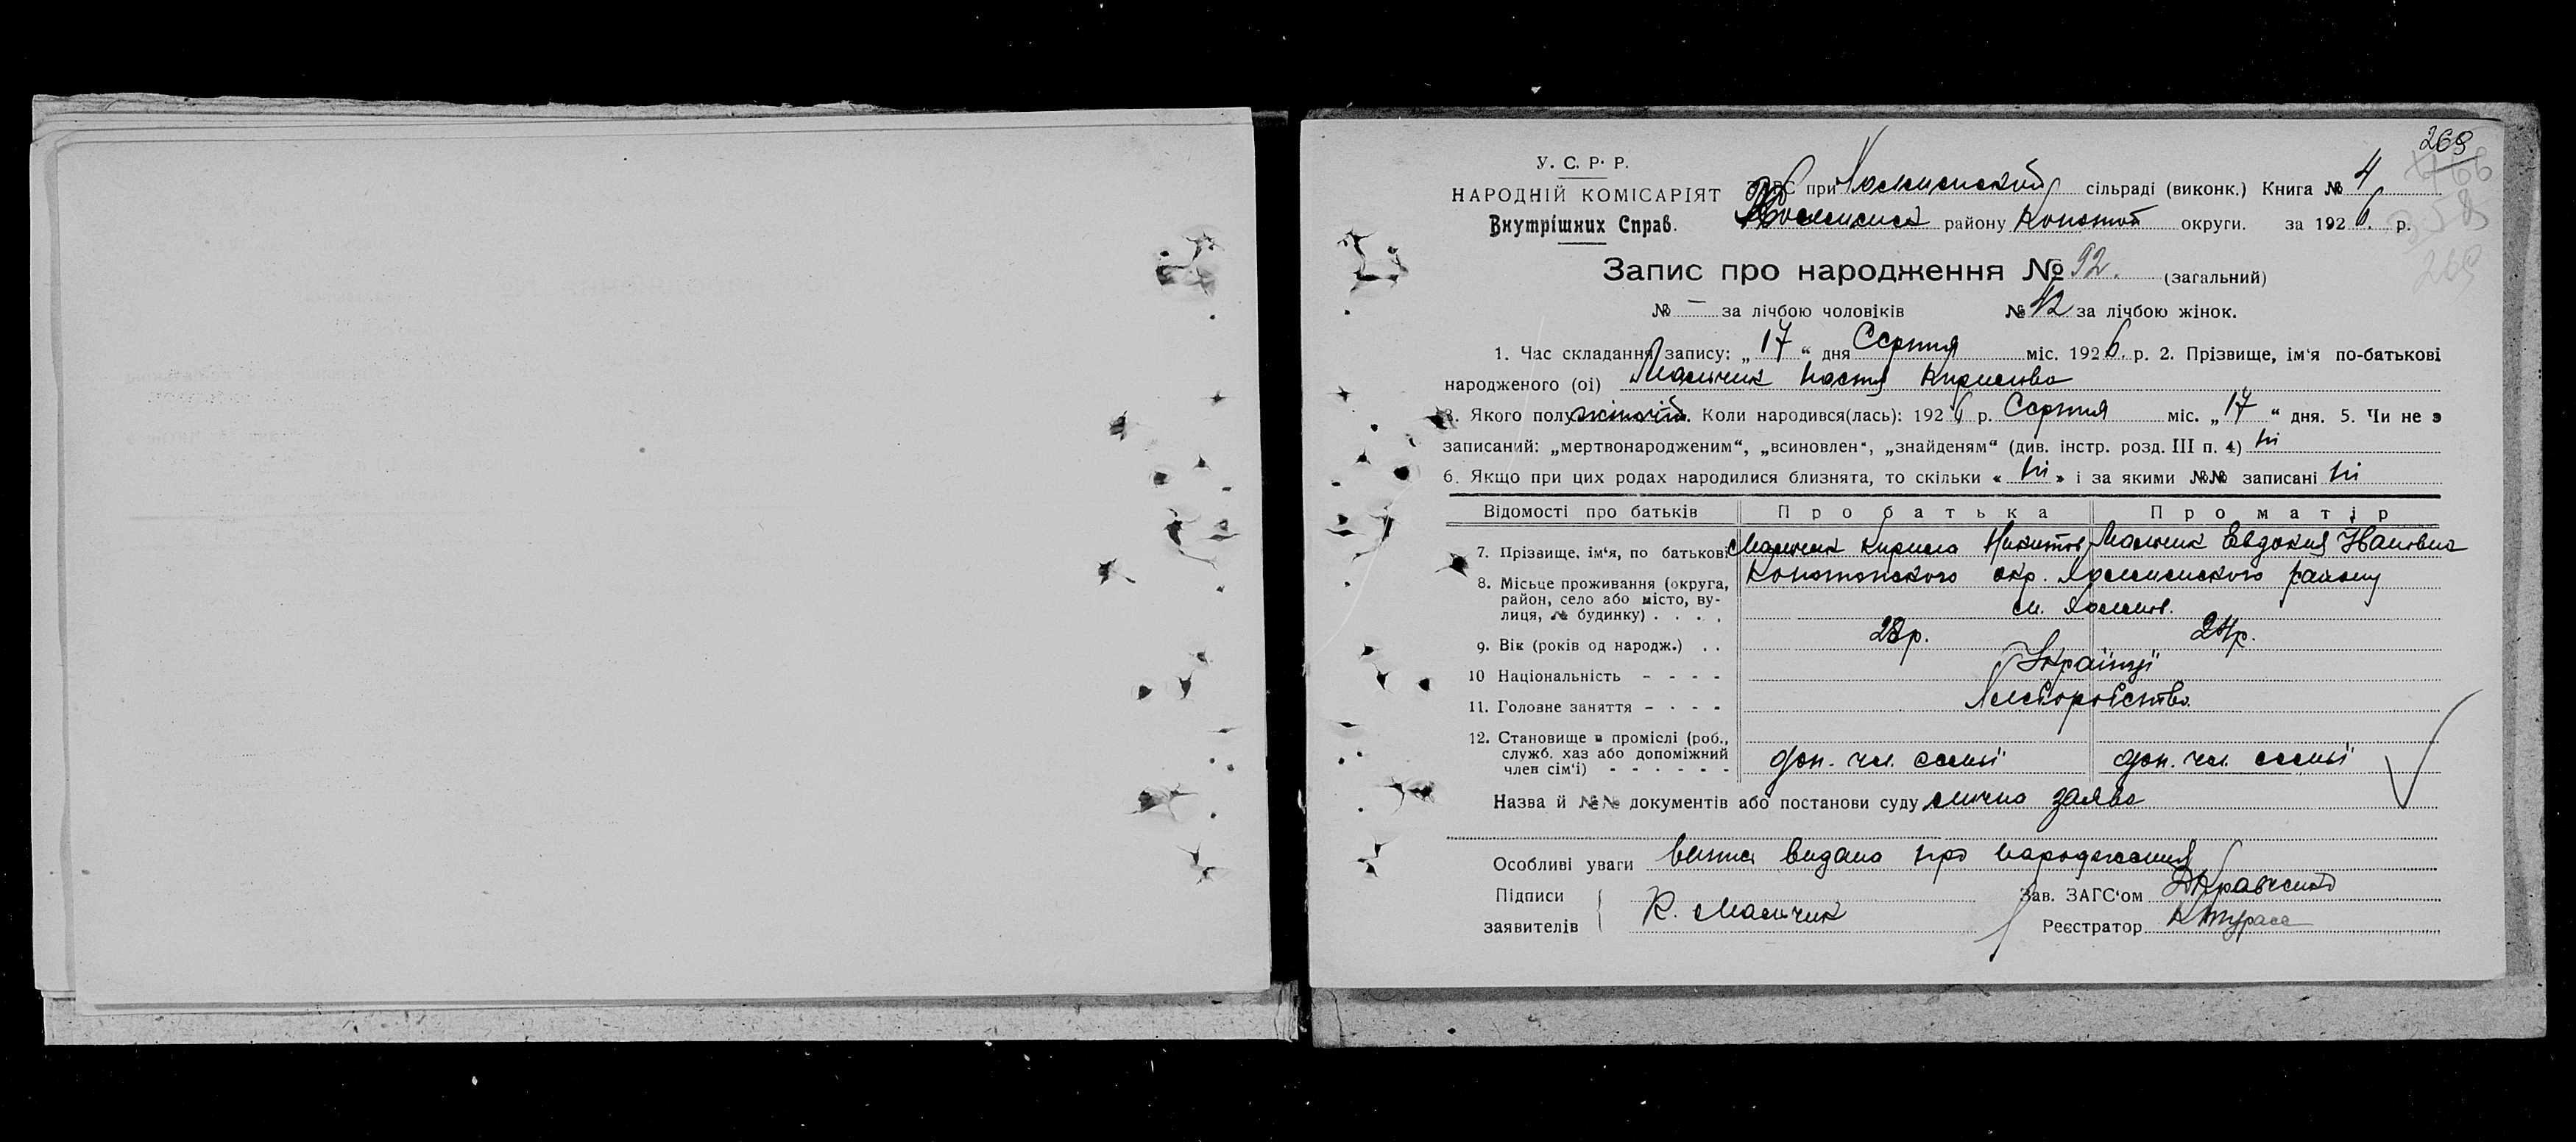 269
У. С. Р. Р.
НАРОДНІЙ КОМІСАРІЯТ
Внутрішних Справ.
ЗАГС при сільраді (виконк.) Книга № 4
району Конотоп округи. за 1926 р.
269
Запис про народження № 92. (загальний)
№ — за лічбою чоловіків № 42 за лічбою жінок.
1. Час складання запису: „17“ дня Серпня міс. 1926. р. 2. Прізвище, ім‘я по-батькові
народженого (ої) Мальчик Настя Кирилова
3. Якого полу жіночій. Коли народився(лась): 1926 р. Серпня міс. „17“ дня. 5. Чи не є
записаний: „мертвонародженим“, „всиновлен“, „знайденям“ (див. інстр. розд. III п. 4) Ні
6. Якщо при цих родах народилися близнята, то скільки « Ні » і за якими №№ записані Ні
Відомості про батьків Про батька Про матір
7. Прізвище, ім‘я, по батькові Мальчик Кирило Никитов Мальчик Евдокия Ивановна
8. Місьце проживання (округа, район, село або місто, вулиця, № будинку) . . . . Конотопского окр. району
м.
9. Вік (років од народж.) . . 28р. 24р.
10 Національність - - - - Українці
11. Головне заняття - - - - Хліборобство
12. Становище в промислі (роб.,
служб. хаз або допоміжний
член сім‘ї) - - - - - - доп. чл. семьї доп. чл. семьї
Назва й №№ документів або постанови суду лична заява
Особливі уваги випис видано про народження
Підписи Зав. ЗАГС‘ом Кравченко
заявителів К. Мальчик Реєстратор